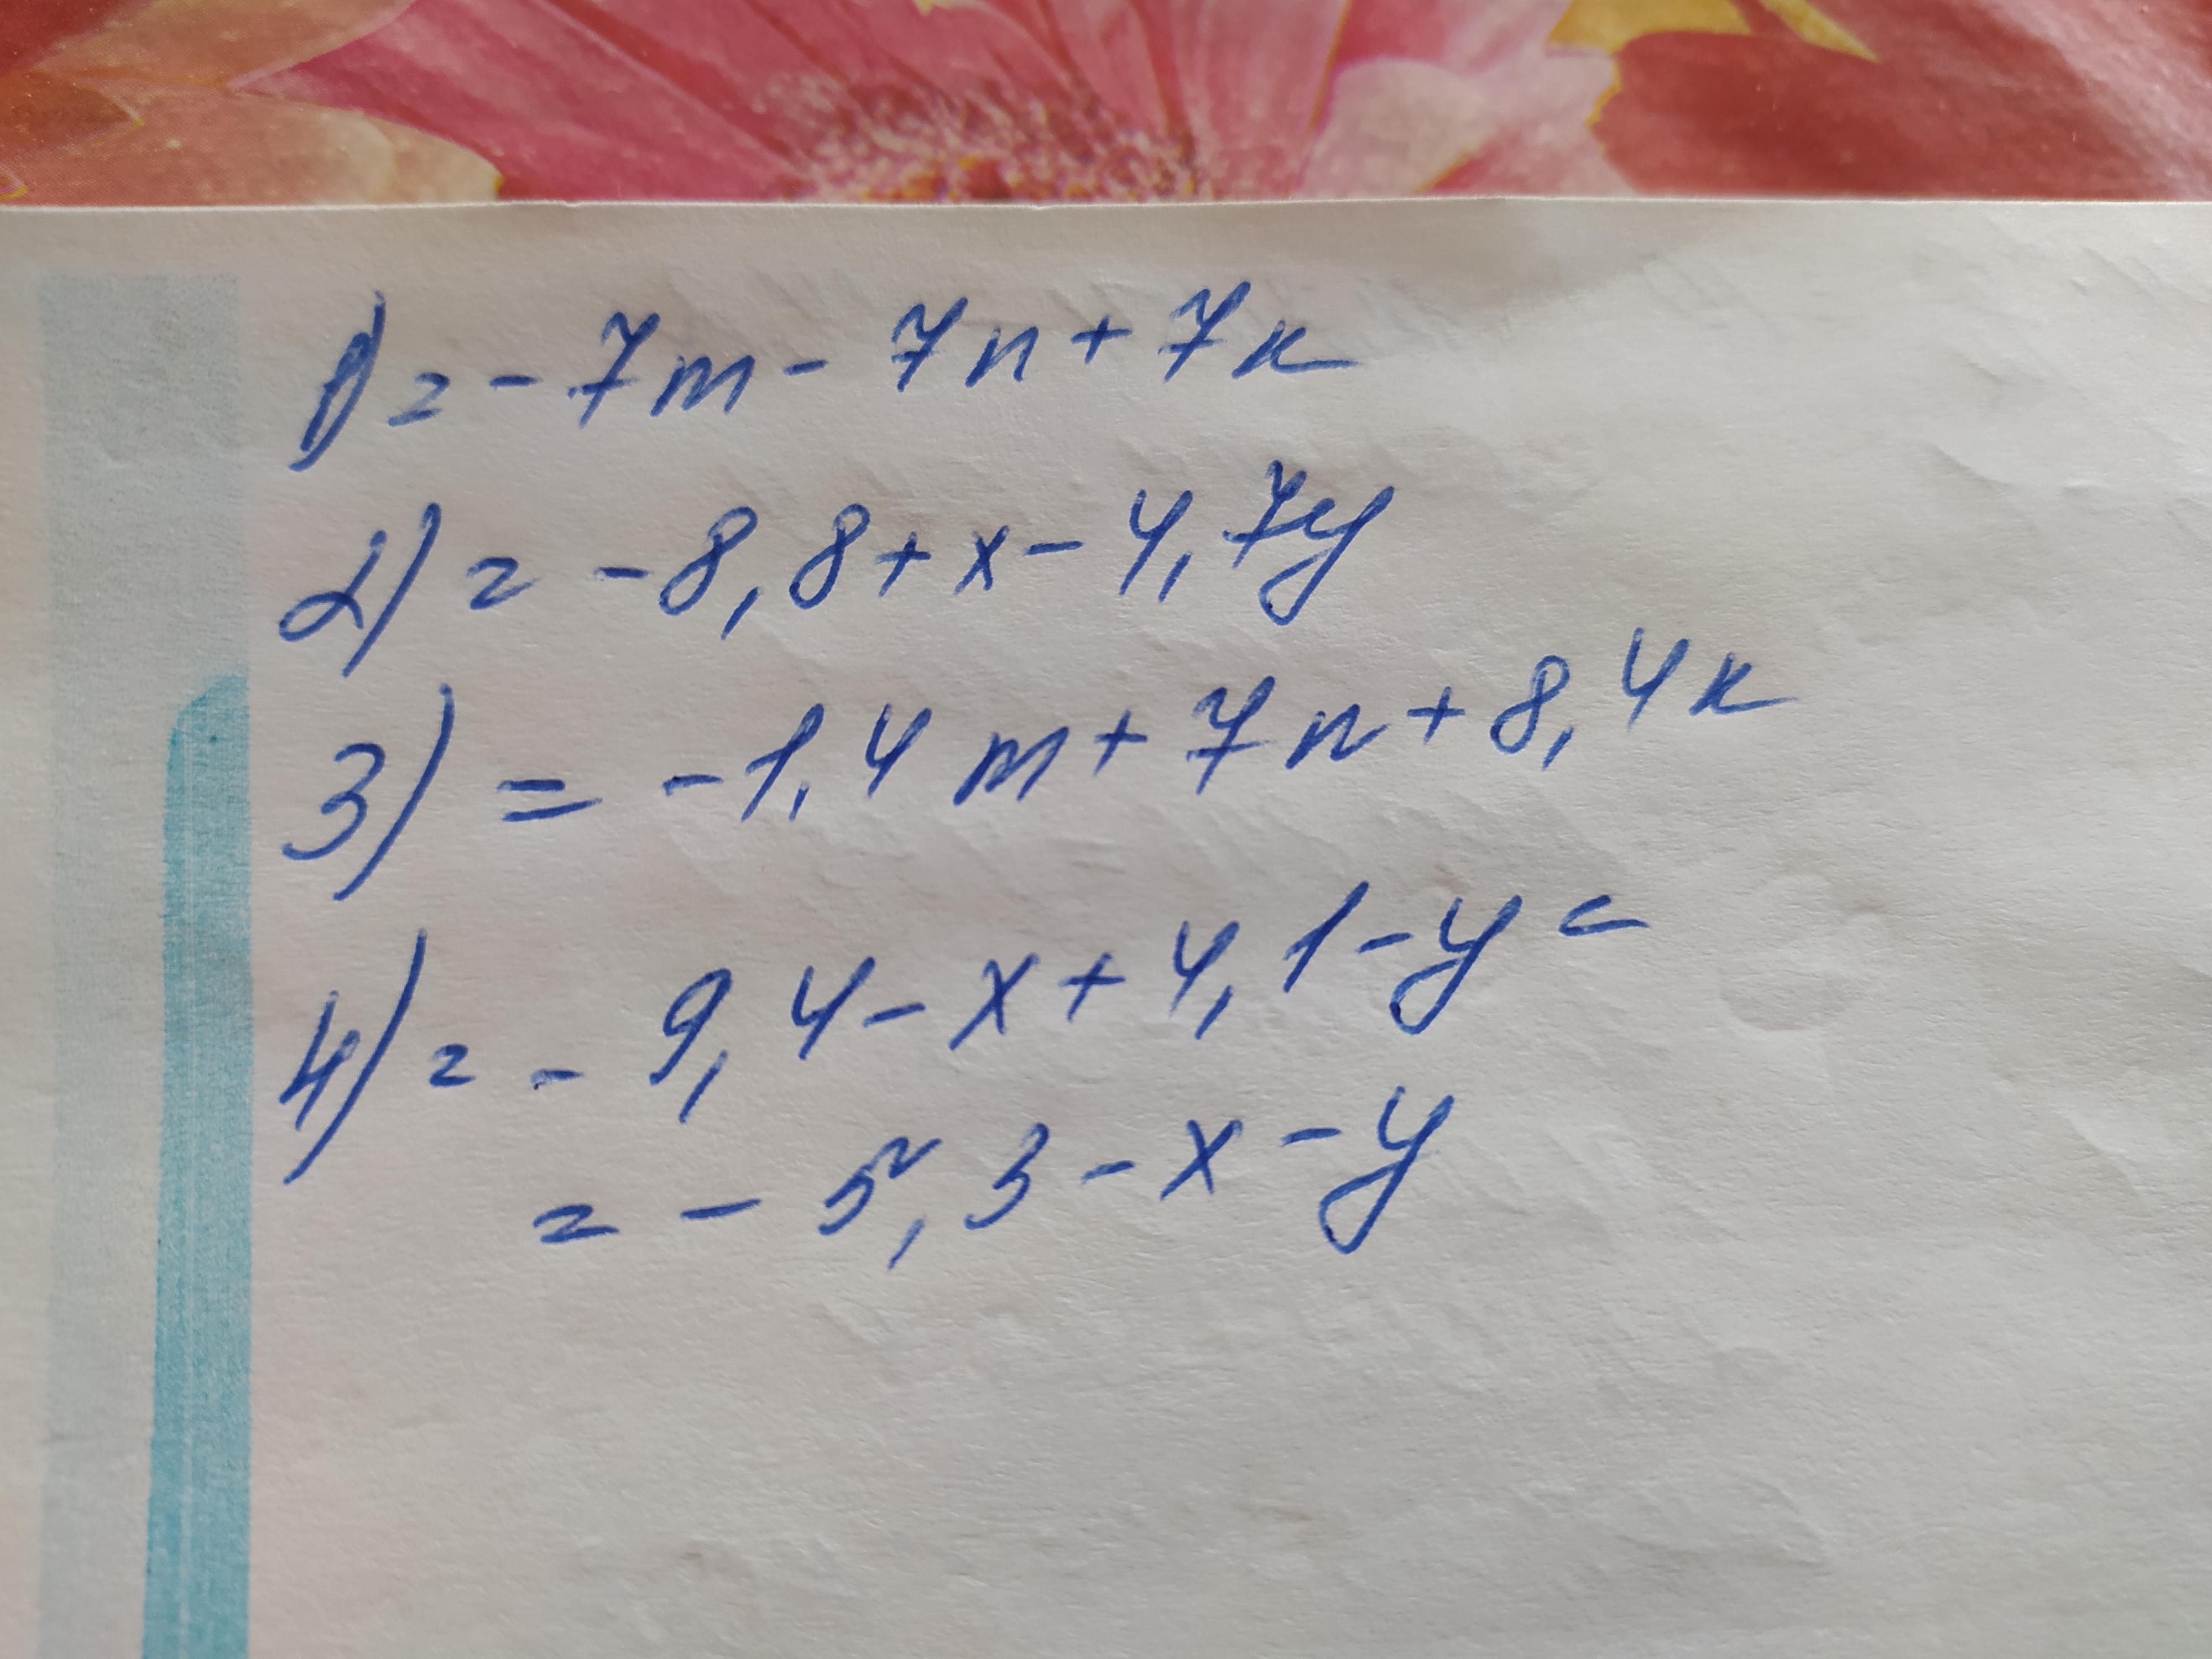 1) = - 7m - 7n + 7k
2) = - 8,8 + x - 4,7y
3) = - 1,4m + 7n + 8,4k
4) = - 9,4 - x + 4,1 - y =
= - 5,3 - x - y